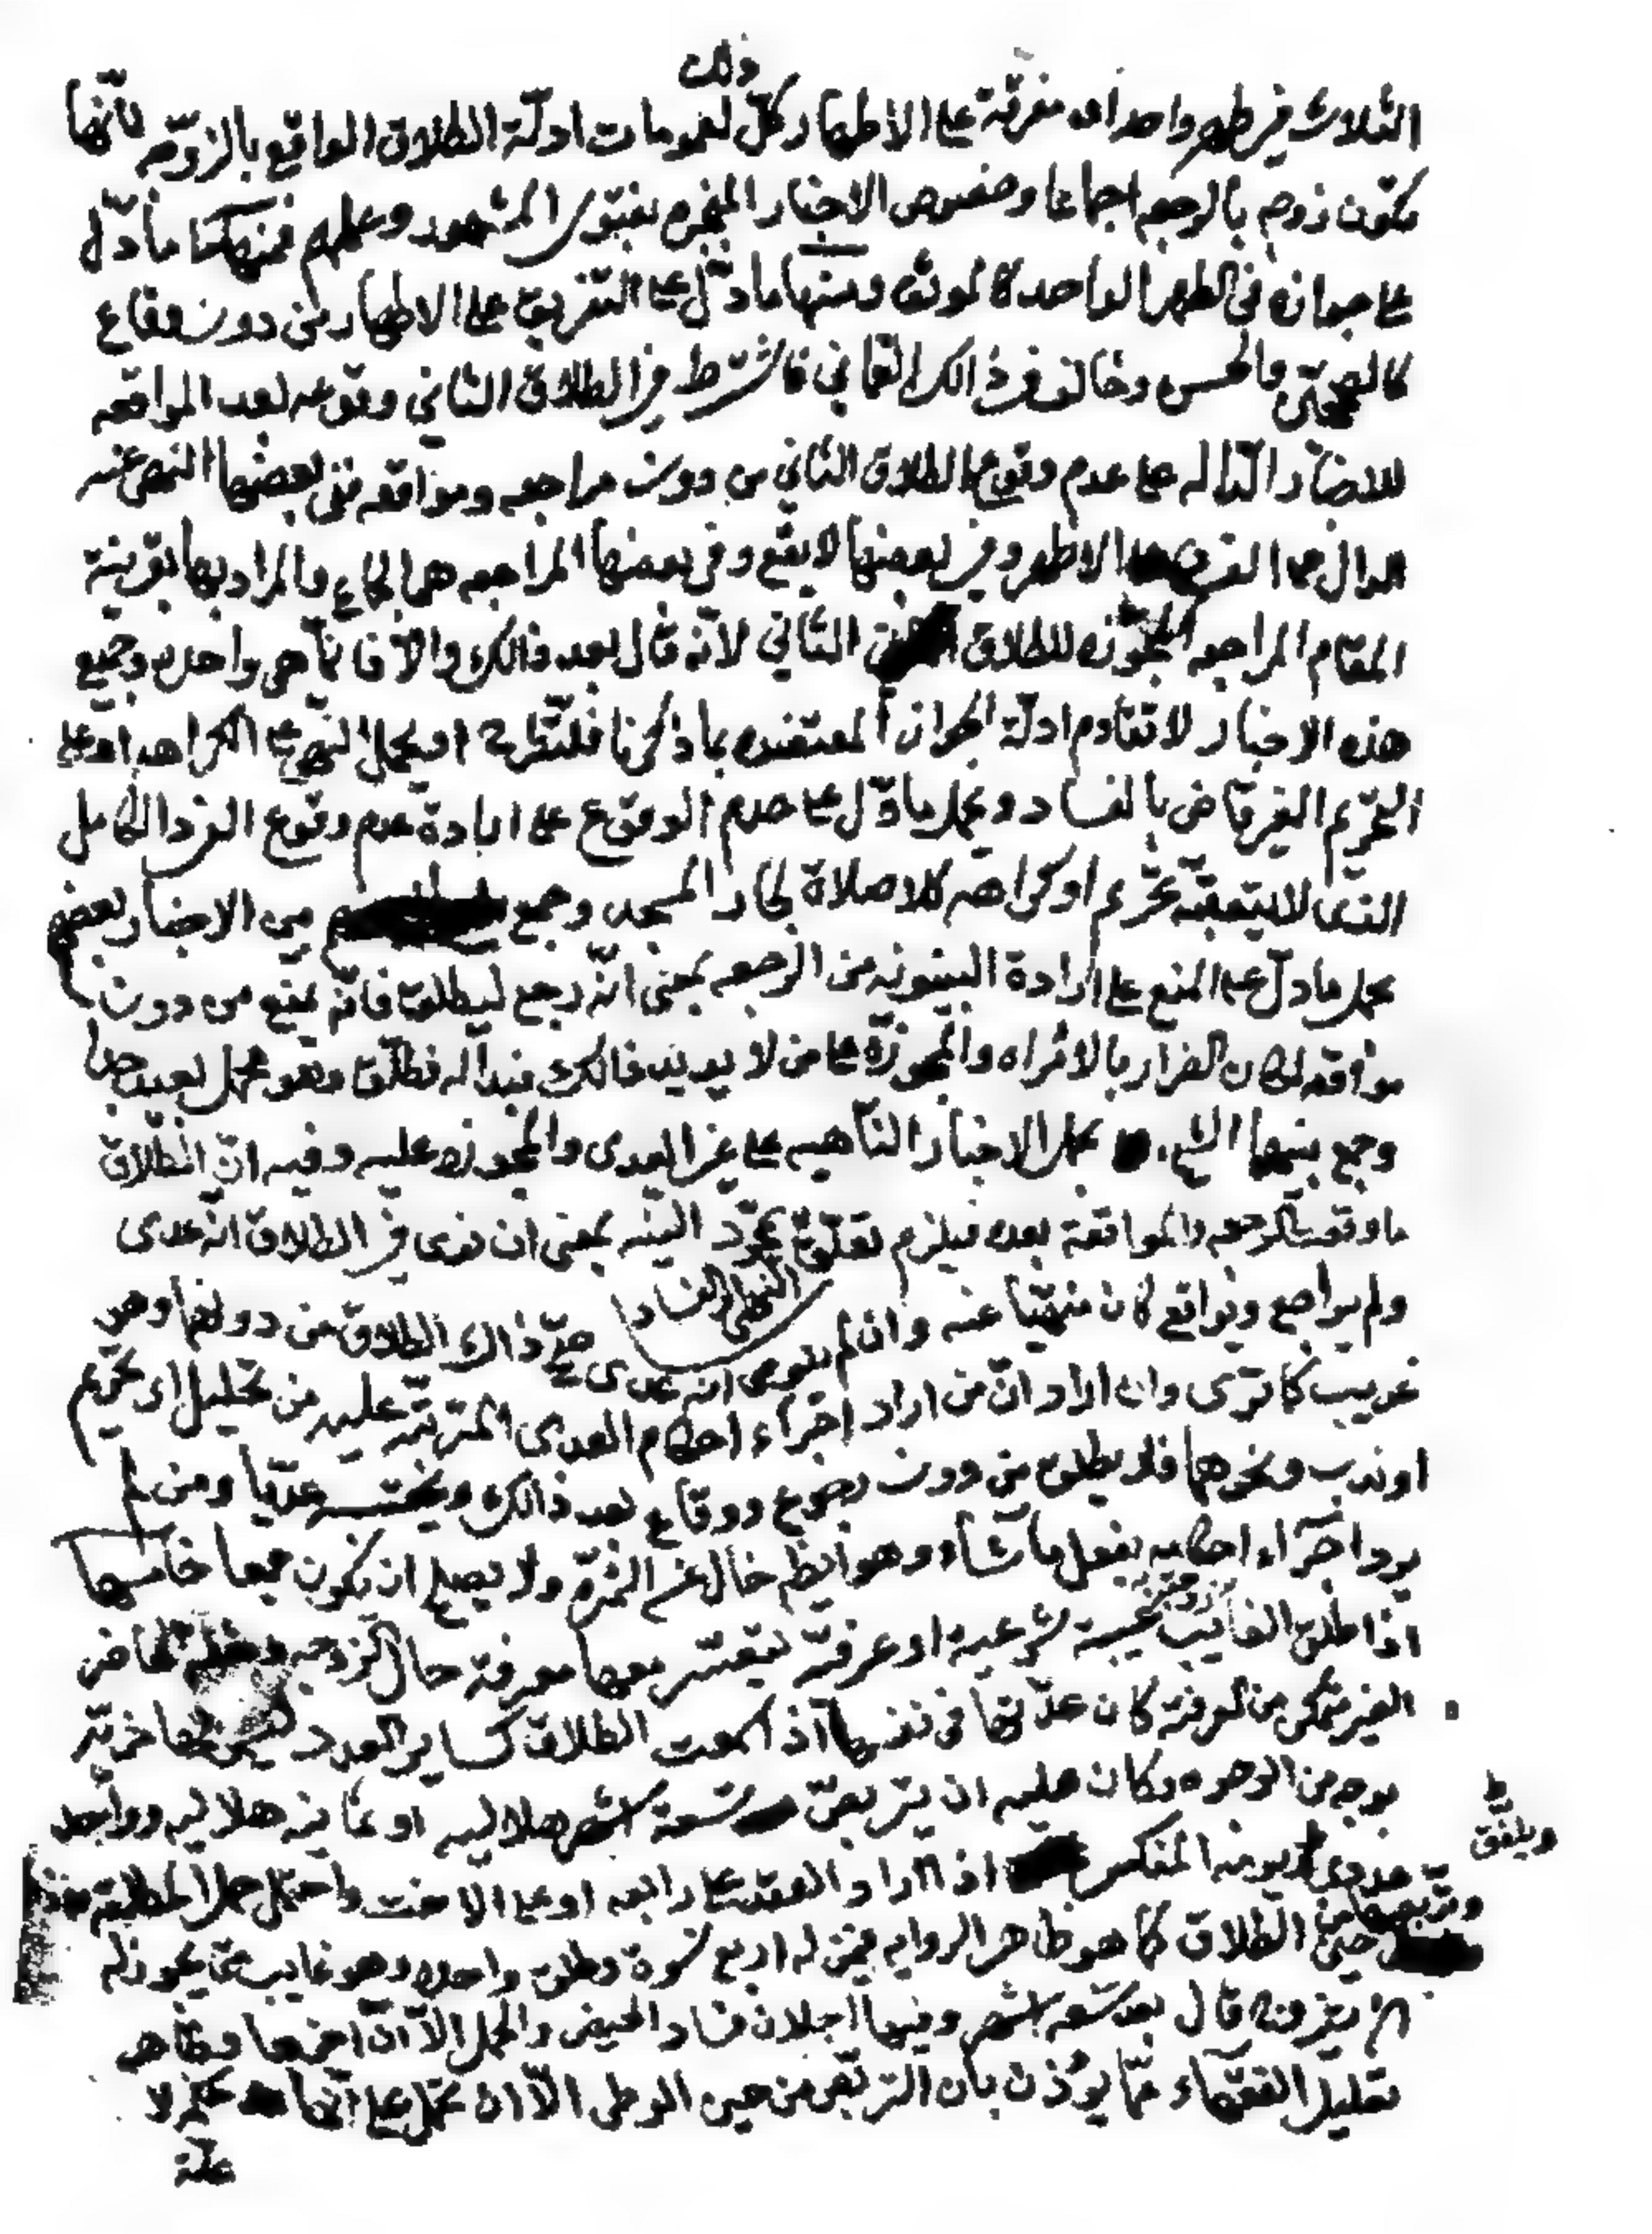 ذلك
الثلاث في طهر واحد او مفرقة على الاطهار وكل لعمومات ادلّة الطلاق الواقع بالزوجه لأنّها
تكون زوجه بالرجعه اجماعا وخصوص الاخبار المنجبره بفتوى المشهور وعملهم فمنها ما دّل
على جوازه في الطهر الواحد كالموثق ومنها ما دّل على التفريق على الاطهار من دون وقاع
كالصحيحين والحسن وخالف في ذالك العماني فاشترط في الطلاق الثاني وقوعه بعد المواقعه
للاخبار الدّاله على عدم وقوع الطلاق الثاني من دون مراجعه ومواقعه ففي بعضها النهى عنه
الدال على الاطهر وفي بعضها لا يقع وفي بعضها المراجعه هى الجماع والمراد بها بقرينة
المقام المراجعه المجوّزه للطلاق الثاني لانه قال بعد ذالك والّا فانّما هى واحده وجميع
هذه الاخبار لا تقاوم ادلّة الجواز المعتضده بما ذكرنا فلتطرح او يحمل النهى على الكراهه او على
التحريم الغير قاض بالفساد ويحمل ما دّل على عدم الوقوع على ارادة عدم وقوع الفرد الكامل
الذى لا يتعقبه تحريم او كراهه كلا صلاة لجار المسجد وجمع بين الاخبار بعضهم
بحمل ما دلّ على المنع على ارادة البينونه من الرجعه بمعنى انّه رجع ليطلق فانّه يمنع من دون
مواقعه لمكان الضرار بالامراه والمجوزة على من لا يريد ذالك فبدا له فطلّق وهو محمل بعيد جدا
وجمع بينهما الشيخ بحمل الاخبار الناهيه على غير العدى والمجوزه عليه وفيه انّ الطلاق
ما وقعت الرجعه والمواقعة بعده فيلزم تعلّق بمجرّد النيه بمعنى ان نوى في الطلاق انّه عدى
ولم يراجع ويواقع كان منهيّا عنه وان لم ينوى انه عدى صحّ ذالك الطلاق من دونهما وهو
النهى او الفساد
غريب كما ترى وان اراد انّ من اراد اجراء احكام العدى المترتّبه عليه من تحليل او تحريم
او ندب ونحوهما فلا يطلق من دون رجوع ووقاع بعد ذالك عدّيا ومن لم
يرد اجراء احكامه يفعل ما شاء وهو ايضا خال عن الثمرة ولا يصلح ان يكون جمعا خامسها
اذا طلق الغايب زوجته غيبة شرعية او عرفيّة يتعسّر معها معرفة حال الزوجه الحاضر
الغير متمكن من المعرفة كان عدّتها في نفسها اذا سمعت الطلاق كساير العدد
بوجه من الوجوه وكان عليه ان يتربّص تسعة اشهر هلاليه او ثمانيه هلاليه وواحد
ويلفق
عددى اذا اراد العقد على رابعه او على الاخت
من حين الطلاق كما هو ظاهر الروايه فيمن له اربع نسوة وطلق واحده وهو غايب متى يجوز له
ان يتزوّج قال بعد تسعه اشهر وفيها اجلان فساد الحيض والحمل الّا انّ
تعليل الفقهاء ممّا يؤذن بان التربّص من حين الوطى الّا ان يحمل على انّها حكم لا
علّة